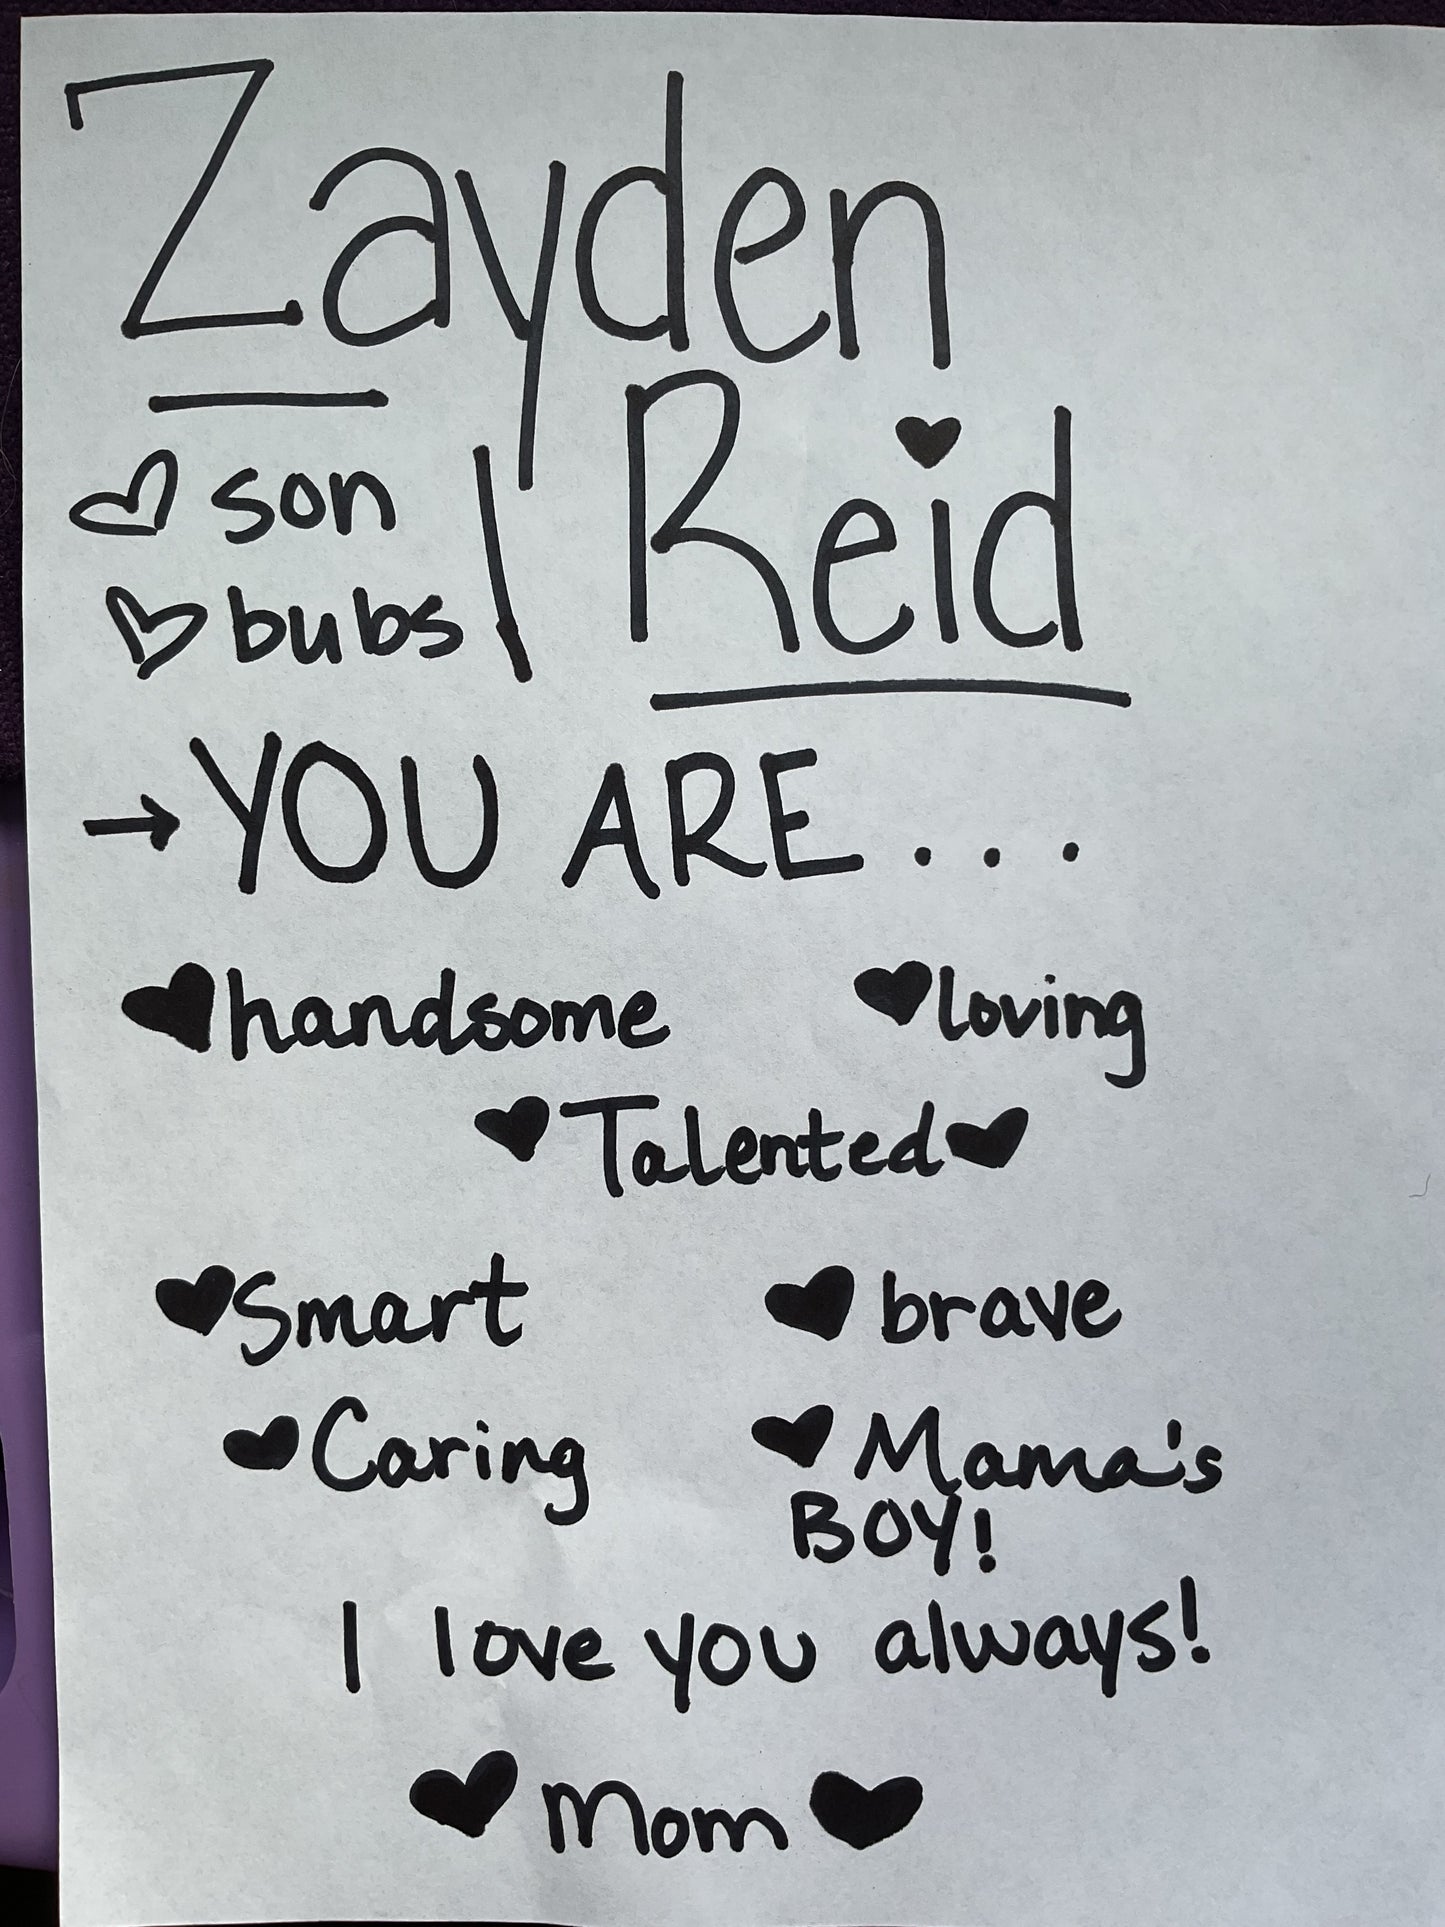 Zayden
Reid
son
bubs
→ YOU ARE...
handsome loving
Talented
Smart brave
Caring Mama's
BOY!
I love you always!
Mom